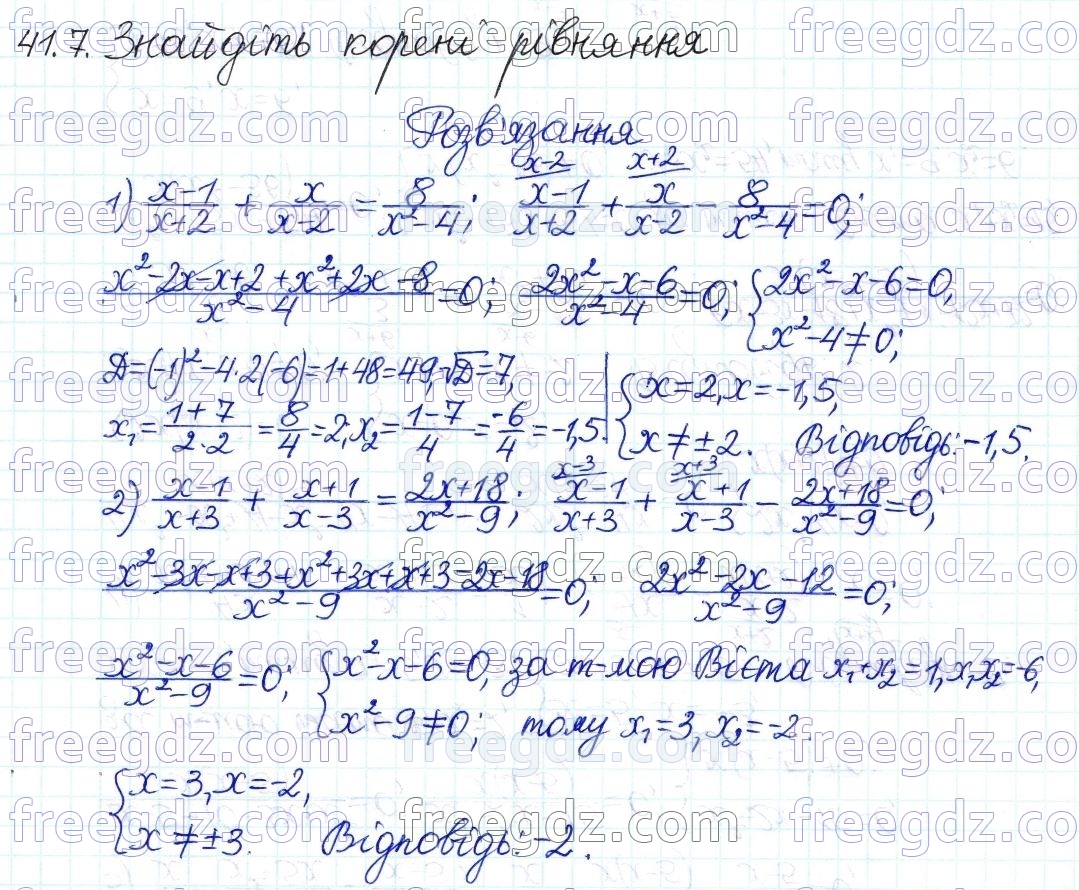 41.7. Знайдіть корені рівняння
Розв'язання
1) (x-1)/(x+2) + x/(x-2) = 8/(x²-4); (x-1)/(x+2) ^(x-2) + x/(x-2) ^(x+2) - 8/(x²-4) = 0;
(x²-2x-x+2+x²+2x-8)/(x²-4) = 0; (2x²-x-6)/(x²-4) = 0; { 2x²-x-6=0,
x²-4≠0;
D=(-1)²-4·2(-6)=1+48=49, √D=7, | { x=2, x=-1,5,
x₁ = (1+7)/(2·2) = 8/4 = 2; x₂ = (1-7)/4 = -6/4 = -1,5. | x≠±2. Відповідь: -1,5.
2) (x-1)/(x+3) + (x+1)/(x-3) = (2x+18)/(x²-9); (x-1)/(x+3) ^(x-3) + (x+1)/(x-3) ^(x+3) - (2x+18)/(x²-9) = 0;
(x²-3x-x+3+x²+3x+x+3-2x-18)/(x²-9) = 0; (2x²-2x-12)/(x²-9) = 0;
(x²-x-6)/(x²-9) = 0; { x²-x-6=0, за т-мою Вієта x₁+x₂=1, x₁x₂=-6,
x²-9≠0; тому x₁=3, x₂=-2.
{ x=3, x=-2,
x≠±3. Відповідь: -2.